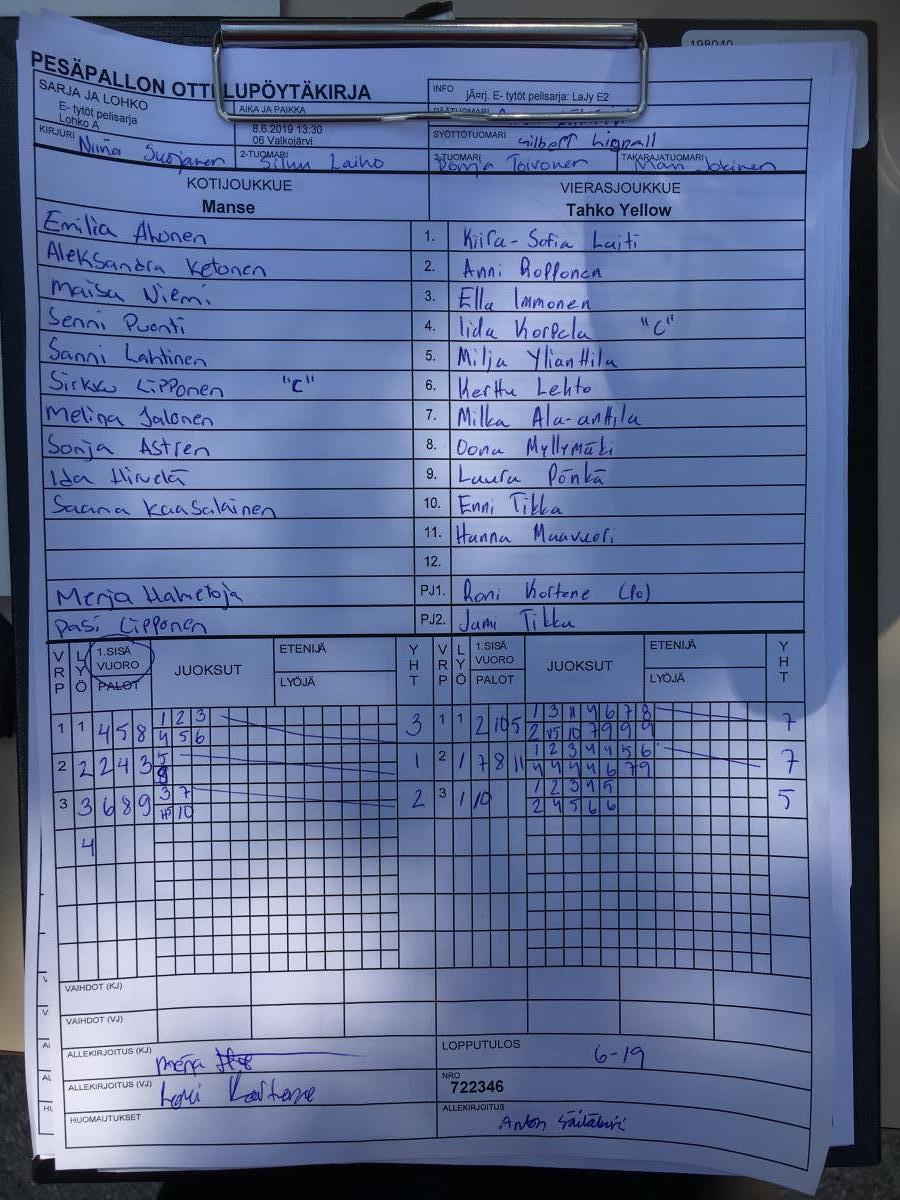 198040
PESÄPALLON OTTELUPÖYTÄKIRJA
SARJA JA LOHKO
E- tytöt pelisarja
Lohko A
AIKA JA PAIKKA
8.6.2019 13:30
06 Valkojärvi
INFO jÃ¤rj. E- tytöt pelisarja: LaJy E2
PÄÄTUOMARI
SYÖTTÖTUOMARI Gilbert
KIRJURI Niina Suojanen
2-TUOMARI Laiho
3-TUOMARI Ronja Toivonen
TAKARAJATUOMARI Jokinen
KOTIJOUKKUE VIERASJOUKKUE
Manse Tahko Yellow
Emilia Ahonen 1. Kiira-Sofia Laiti
Aleksandra Ketonen 2. Anni Ropponen
Maisa Niemi 3. Ella Immonen
Senni Puonti 4. Iida Korpela "C"
Sanni Lahtinen 5. Milja Ylianttila
Sirkku Lipponen "C" 6. Kerttu Lehto
Melina Jalonen 7. Milka Ala-anttila
Sonja Astren 8. Oona Myllymäki
Ida Hirvelä 9. Laura Pönkä
Saana Kaasalainen 10. Enni Tikka
11. Hanna Maavuori
12.
Merja Hahetoja PJ1. Roni Kortene (Po)
Pasi Lipponen PJ2. Jami Tikka
VRP LYÖ 1.SISÄ VUORO PALOT JUOKSUT ETENIJÄ LYÖJÄ YHT VRP LYÖ 1.SISÄ VUORO PALOT JUOKSUT ETENIJÄ LYÖJÄ YHT
1 1 4 5 8 1 2 3 3 1 1 2 10 5 1 3 11 4 6 7 8 7
4 5 6 2 5 10 7 9 9 9
2 2 2 4 3 5 1 2 1 7 8 11 1 2 3 4 4 5 6 7
8 4 4 4 4 6 7 9
3 3 6 8 9 3 7 2 3 1 10 1 2 3 4 5 5
10 2 4 5 6 6
4
VAIHDOT (KJ)
VAIHDOT (VJ)
ALLEKIRJOITUS (KJ) Merja
LOPPUTULOS 6-19
ALLEKIRJOITUS (VJ)
NRO
722346
HUOMAUTUKSET
ALLEKIRJOITUS Anton